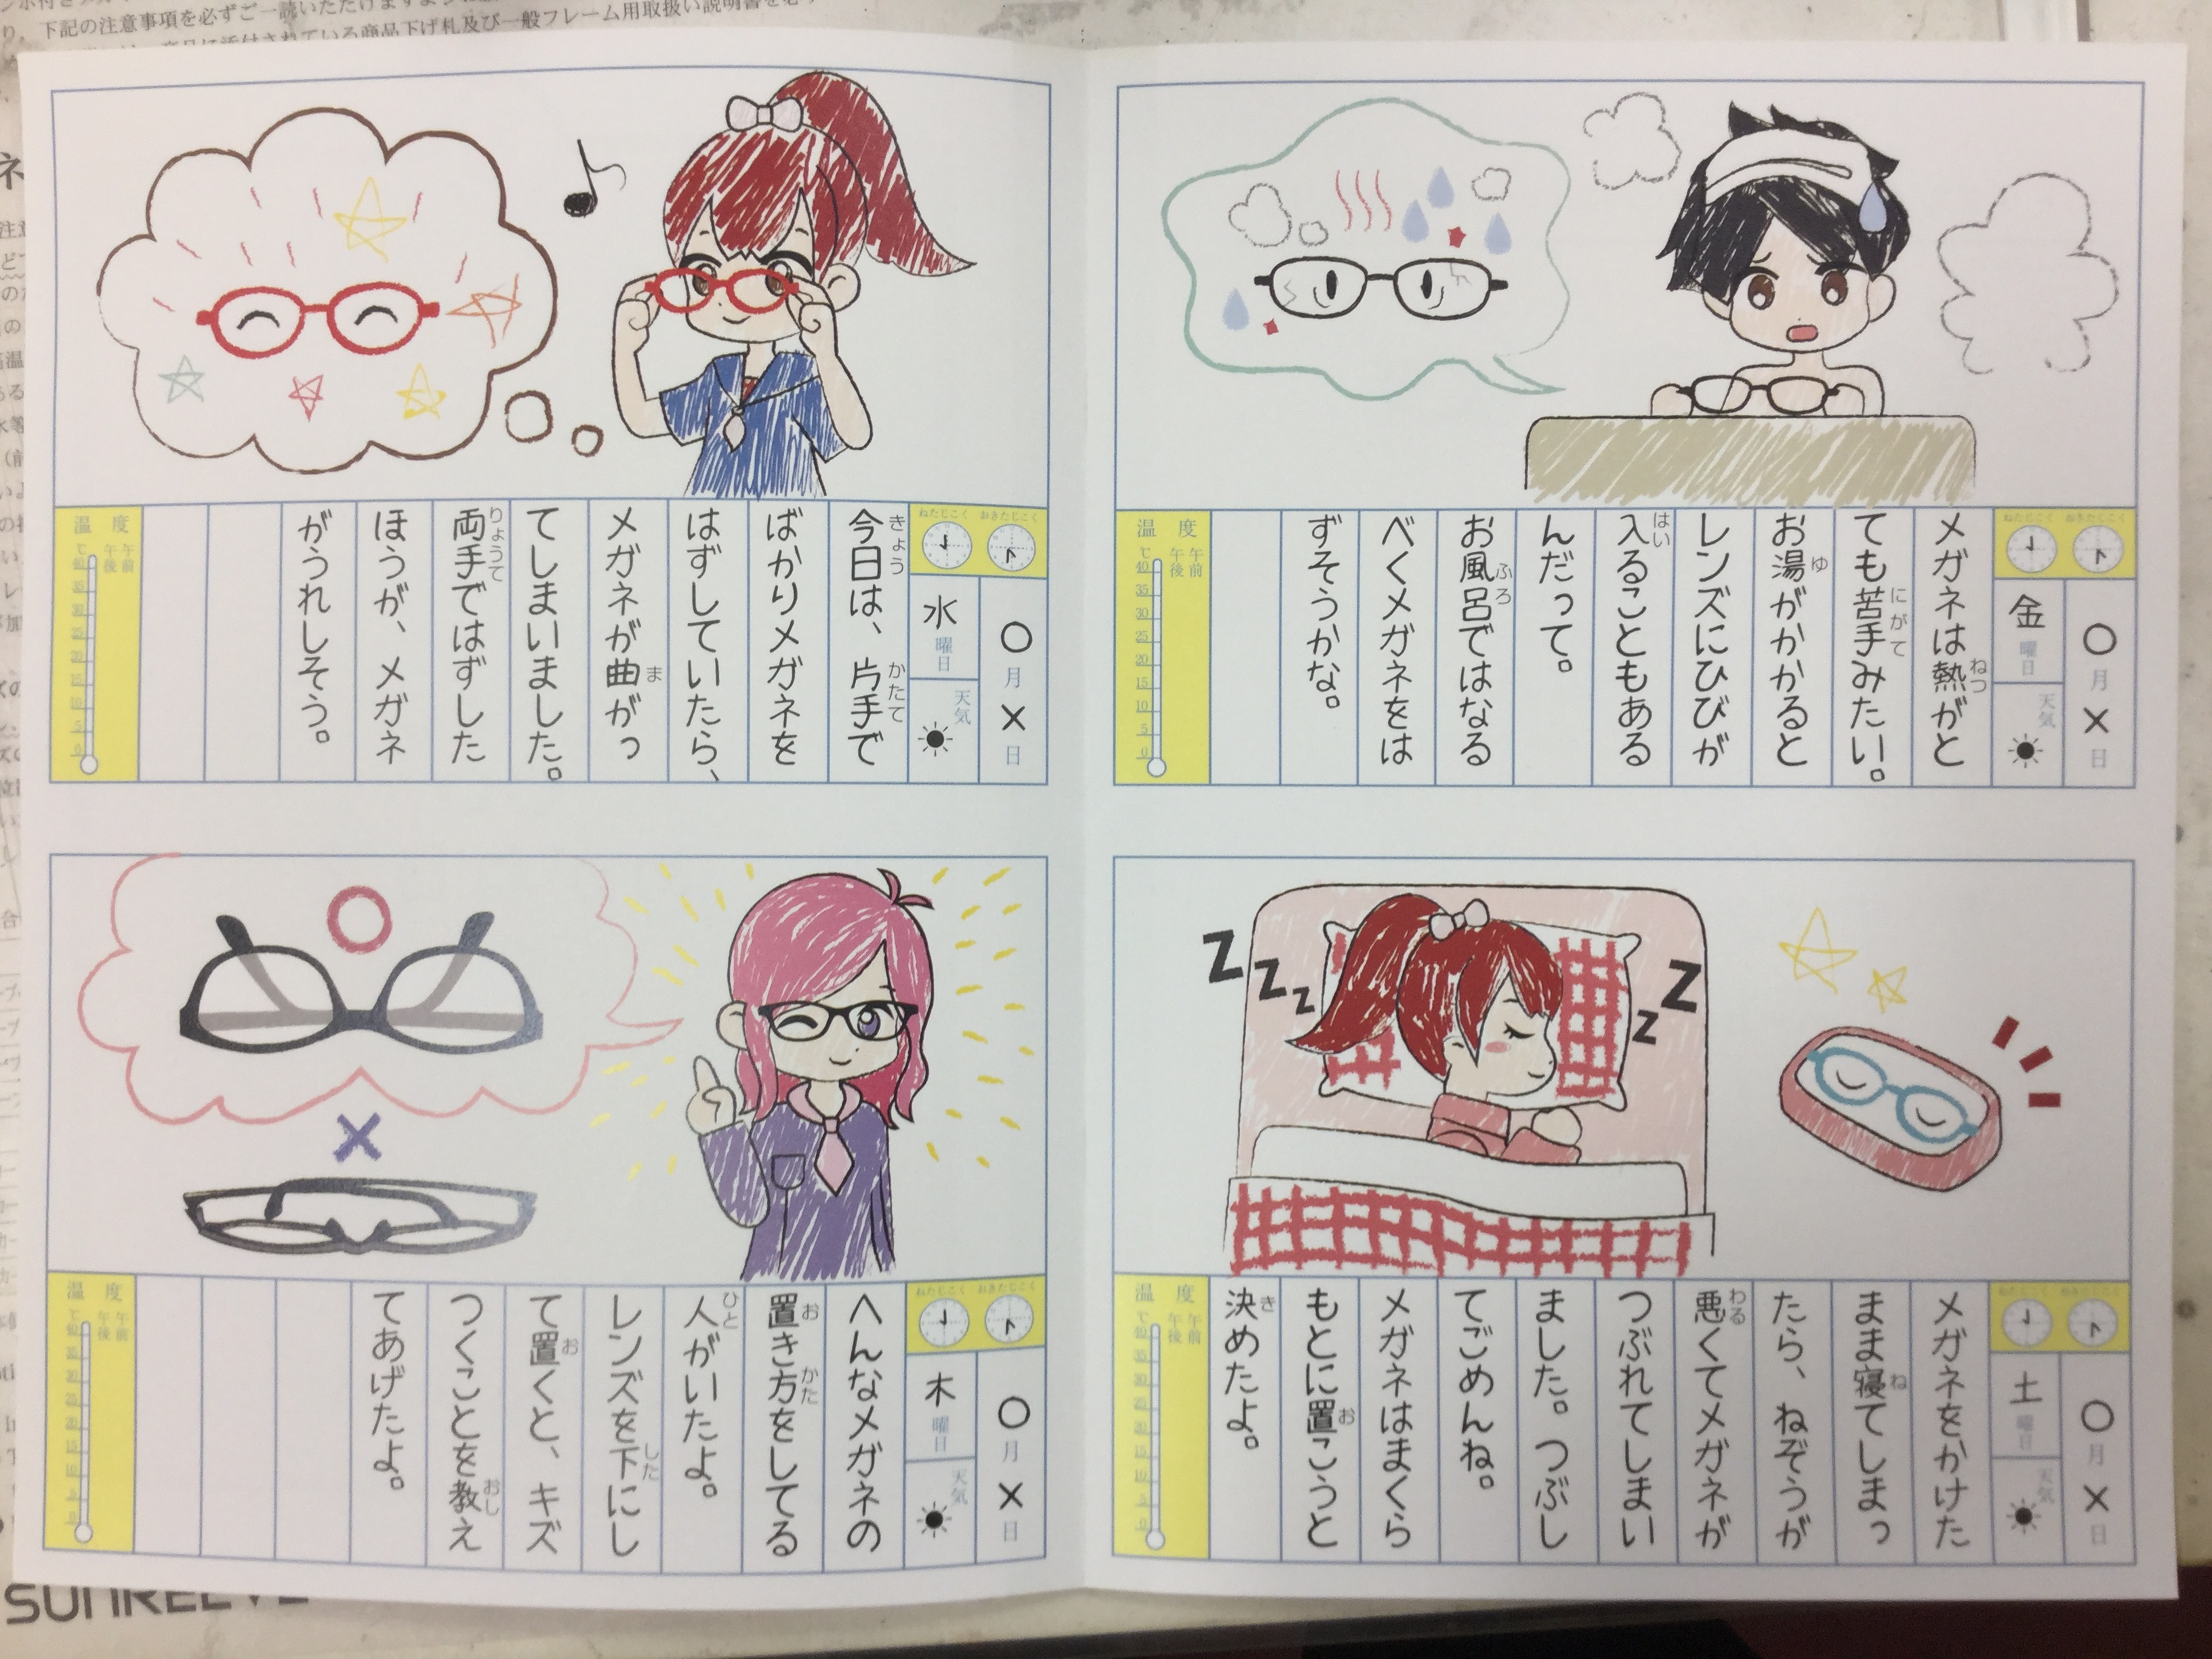 下記の注意事項を必ずご一読いただけますよう
商品下げ札及び一般フレーム用取扱い説明書を必
おきたじこく
ねたじこく
○月×日
水曜日
天気
今日は、片手で
きょう
かたて
ばかりメガネを
はずしていたら、
メガネが曲がっ
ま
てしまいました。
両手ではずした
りょうて
ほうが、メガネ
がうれしそう。
温度
午前
午後
℃
40
35
30
25
20
15
10
5
0
おきたじこく
ねたじこく
○月×日
木曜日
天気
へんなメガネの
置き方をしてる
お
かた
人がいたよ。
ひと
レンズを下にし
した
て置くと、キズ
お
つくことを教え
おし
てあげたよ。
温度
午前
午後
℃
40
35
30
25
20
15
10
5
0
おきたじこく
ねたじこく
○月×日
金曜日
天気
メガネは熱がと
ねつ
ても苦手みたい。
にがて
お湯がかかると
ゆ
レンズにひびが
入ることもある
はい
んだって。
お風呂ではなる
ふろ
べくメガネをは
ずそうかな。
温度
午前
午後
℃
40
35
30
25
20
15
10
5
0
おきたじこく
ねたじこく
○月×日
土曜日
天気
メガネをかけた
まま寝てしまっ
ね
たら、ねぞうが
悪くてメガネが
わる
つぶれてしまい
ました。つぶし
てごめんね。
メガネはまくら
もとに置こうと
お
決めたよ。
き
温度
午前
午後
℃
40
35
30
25
20
15
10
5
0
Z
Z
Z
Z
Z